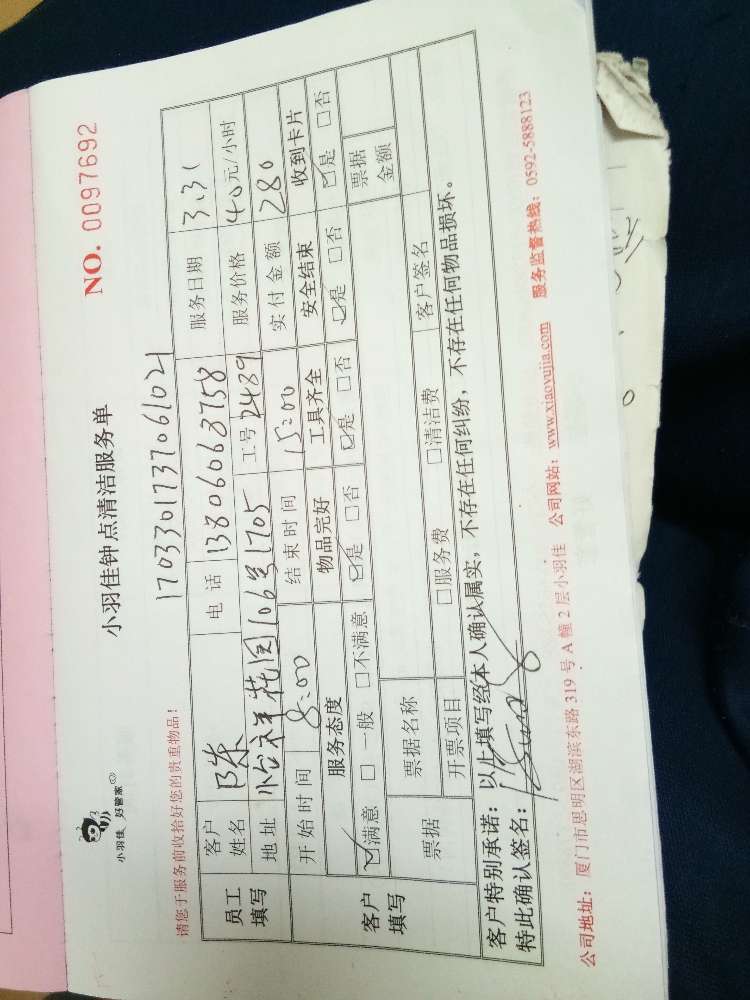 小羽佳 好管家
小羽佳钟点清洁服务单
NO. 0097692
请您于服务前收拾好您的贵重物品！
1703301737061021
员工填写 客户姓名 陈 电话 13806063758 服务日期 3.31
地址 怡祥花园106号1705 工号 2489 服务价格 40元/小时
开始时间 8:00 结束时间 15:00 实付金额 280
客户填写 服务态度 物品完好 工具齐全 安全结束 收到卡片
☑满意 □一般 □不满意 ☑是 □否 ☑是 □否 ☑是 □否 ☑是 □否
票据 票据名称 票据金额
开票项目 □服务费 □清洁费 客户签名
客户特别承诺：以此填写经本人确认属实，不存在任何纠纷，不存在任何物品损坏。
特此确认签名：
公司地址：厦门市思明区湖滨东路 319 号 A 幢 2 层小羽佳 公司网站：www.xiaoyujia.com 服务监督热线：0592-5888123